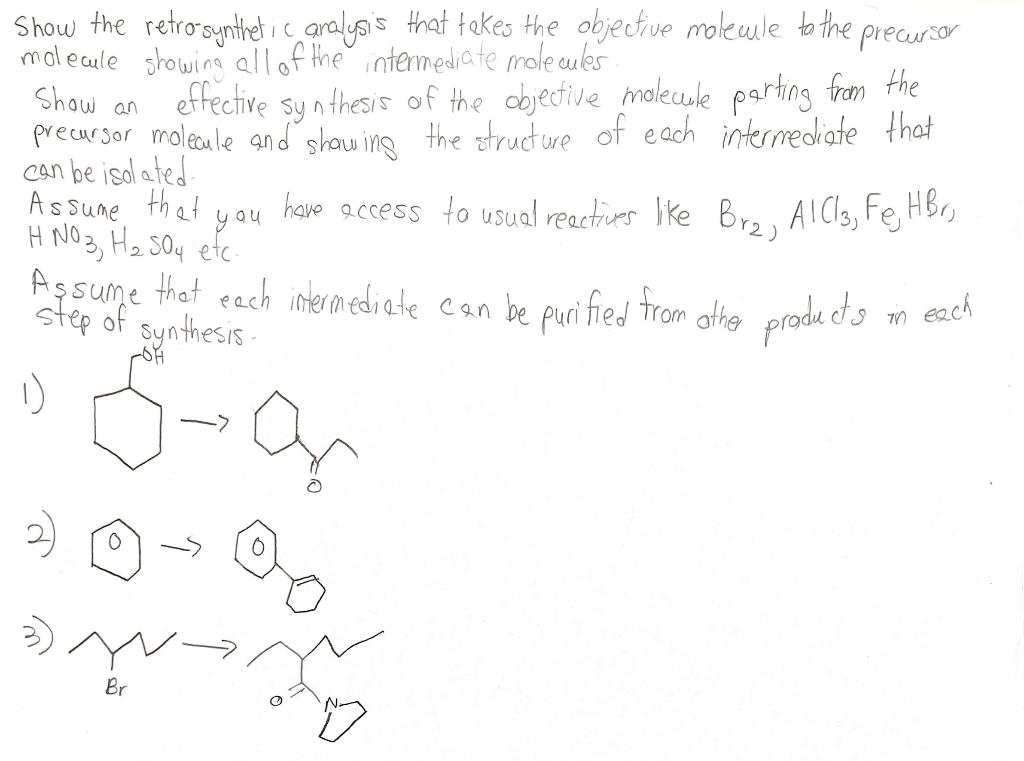 Show the retro-synthetic analysis that takes the objective molecule to the precursor
molecule showing all of the intermediate molecules.
Show an effective synthesis of the objective molecule parting from the
precursor molecule and showing the structure of each intermediate that
can be isolated.
Assume that you have access to usual reactives like Br2, AlCl3, Fe, HBr,
HNO3, H2SO4 etc.
Assume that each intermediate can be purified from other products in each
step of synthesis.
1) OH → O
2) →
3) Br → O N